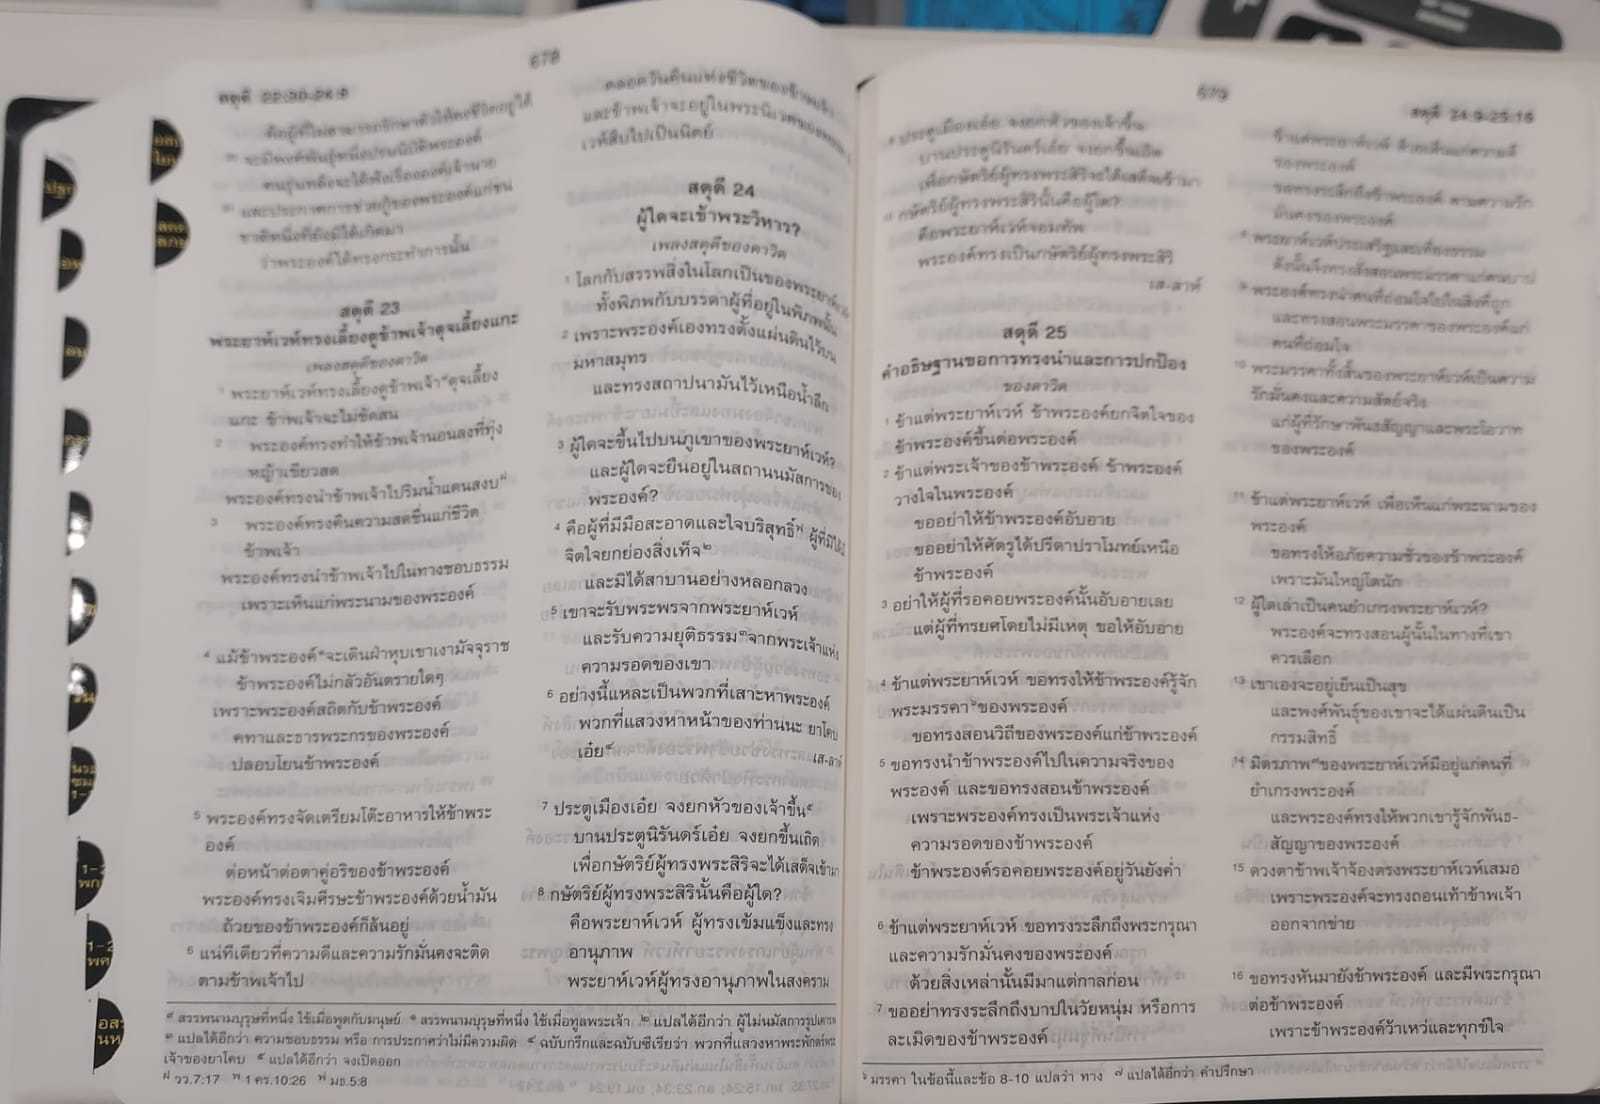 678
สดุดี 22:30-24:9
คือผู้ที่ไม่สามารถรักษาตัวให้คงชีวิตอยู่ได้
30 จะมีพงศ์พันธุ์หนึ่งปรนนิบัติพระองค์
คนรุ่นหลังจะได้ฟังเรื่ององค์เจ้านาย
31 และประกาศการช่วยกู้ของพระองค์แก่ชน
ชาติหนึ่งที่ยังมิได้เกิดมา
ว่าพระองค์ได้ทรงกระทำการนั้น
สดุดี 23
พระยาห์เวห์ทรงเลี้ยงดูข้าพเจ้าดุจเลี้ยงแกะ
เพลงสดุดีของดาวิด
1 พระยาห์เวห์ทรงเลี้ยงดูข้าพเจ้า ดุจเลี้ยง
แกะ ข้าพเจ้าจะไม่ขัดสน
2 พระองค์ทรงทำให้ข้าพเจ้านอนลงที่ทุ่ง
หญ้าเขียวสด
พระองค์ทรงนำข้าพเจ้าไปริมน้ำแดนสงบ
3 พระองค์ทรงคืนความสดชื่นแก่ชีวิต
ข้าพเจ้า
พระองค์ทรงนำข้าพเจ้าไปในทางชอบธรรม
เพราะเห็นแก่พระนามของพระองค์
4 แม้ข้าพระองค์จะเดินฝ่าหุบเขาเงามัจจุราช
ข้าพระองค์ไม่กลัวอันตรายใดๆ
เพราะพระองค์สถิตกับข้าพระองค์
คทาและธารพระกรของพระองค์
ปลอบโยนข้าพระองค์
5 พระองค์ทรงจัดเตรียมโต๊ะอาหารให้ข้าพระ
องค์
ต่อหน้าต่อตาคู่อริของข้าพระองค์
พระองค์ทรงเจิมศีรษะข้าพระองค์ด้วยน้ำมัน
ถ้วยของข้าพระองค์ก็ล้นอยู่
6 แน่ทีเดียวที่ความดีและความรักมั่นคงจะติด
ตามข้าพเจ้าไป
ตลอดวันคืนแห่งชีวิตของข้าพเจ้า
และข้าพเจ้าจะอยู่ในพระนิเวศของพระยาห์
เวห์สืบไปเป็นนิตย์
สดุดี 24
ผู้ใดจะเข้าพระวิหาร?
เพลงสดุดีของดาวิด
1 โลกกับสรรพสิ่งในโลกเป็นของพระยาห์เวห์
ทั้งพิภพกับบรรดาผู้ที่อยู่ในพิภพนั้น
2 เพราะพระองค์เองทรงตั้งแผ่นดินไว้บน
มหาสมุทร
และทรงสถาปนามันไว้เหนือน้ำลึก
3 ผู้ใดจะขึ้นไปบนภูเขาของพระยาห์เวห์?
และผู้ใดจะยืนอยู่ในสถานนมัสการของ
พระองค์?
4 คือผู้ที่มีมือสะอาดและใจบริสุทธิ์ ผู้ที่มิได้มี
จิตใจยกย่องสิ่งเท็จ
และมิได้สาบานอย่างหลอกลวง
5 เขาจะรับพระพรจากพระยาห์เวห์
และรับความยุติธรรมจากพระเจ้าแห่ง
ความรอดของเขา
6 อย่างนี้แหละเป็นพวกที่เสาะหาพระองค์
พวกที่แสวงหาหน้าของท่านนะ ยาโคบ
เอ๋ย เส-ลาห์
7 ประตูเมืองเอ๋ย จงยกหัวของเจ้าขึ้น
บานประตูนิรันดร์เอ๋ย จงยกขึ้นเถิด
เพื่อกษัตริย์ผู้ทรงพระสิริจะได้เสด็จเข้ามา
8 กษัตริย์ผู้ทรงพระสิรินั้นคือผู้ใด?
คือพระยาห์เวห์ ผู้ทรงเข้มแข็งและทรง
อานุภาพ
พระยาห์เวห์ผู้ทรงอานุภาพในสงคราม
สรรพนามบุรุษที่หนึ่ง ใช้เมื่อพูดกับมนุษย์ สรรพนามบุรุษที่หนึ่ง ใช้เมื่อทูลพระเจ้า แปลได้อีกว่า ผู้ไม่นมัสการรูปเคารพ
แปลได้อีกว่า ความชอบธรรม หรือ การประกาศว่าไม่มีความผิด ฉบับกรีกและฉบับซีเรียว่า พวกที่แสวงหาพระพักตร์พระ
เจ้าของยาโคบ แปลได้อีกว่า จงเปิดออก
ฝ วว.7:17 พ 1 คร.10:26 ฟ มธ.5:8
679
สดุดี 24:9-25:16
9 ประตูเมืองเอ๋ย จงยกหัวของเจ้าขึ้น
บานประตูนิรันดร์เอ๋ย จงยกขึ้นเถิด
เพื่อกษัตริย์ผู้ทรงพระสิริจะได้เสด็จเข้ามา
10 กษัตริย์ผู้ทรงพระสิรินั้นคือผู้ใด?
คือพระยาห์เวห์จอมทัพ
พระองค์ทรงเป็นกษัตริย์ผู้ทรงพระสิริ
เส-ลาห์
สดุดี 25
คำอธิษฐานขอการทรงนำและการปกป้อง
ของดาวิด
1 ข้าแต่พระยาห์เวห์ ข้าพระองค์ยกจิตใจของ
ข้าพระองค์ขึ้นต่อพระองค์
2 ข้าแต่พระเจ้าของข้าพระองค์ ข้าพระองค์
วางใจในพระองค์
ขออย่าให้ข้าพระองค์อับอาย
ขออย่าให้ศัตรูได้ปรีดาปราโมทย์เหนือ
ข้าพระองค์
3 อย่าให้ผู้ที่รอคอยพระองค์นั้นอับอายเลย
แต่ผู้ที่ทรยศโดยไม่มีเหตุ ขอให้อับอาย
4 ข้าแต่พระยาห์เวห์ ขอทรงให้ข้าพระองค์รู้จัก
พระมรรคาของพระองค์
ขอทรงสอนวิถีของพระองค์แก่ข้าพระองค์
5 ขอทรงนำข้าพระองค์ไปในความจริงของ
พระองค์ และขอทรงสอนข้าพระองค์
เพราะพระองค์ทรงเป็นพระเจ้าแห่ง
ความรอดของข้าพระองค์
ข้าพระองค์รอคอยพระองค์อยู่วันยังค่ำ
6 ข้าแต่พระยาห์เวห์ ขอทรงระลึกถึงพระกรุณา
และความรักมั่นคงของพระองค์
ด้วยสิ่งเหล่านั้นมีมาแต่กาลก่อน
7 ขออย่าทรงระลึกถึงบาปในวัยหนุ่ม หรือการ
ละเมิดของข้าพระองค์
ข้าแต่พระยาห์เวห์ ด้วยเห็นแก่ความดี
ของพระองค์
ขอทรงระลึกถึงข้าพระองค์ ตามความรัก
มั่นคงของพระองค์
8 พระยาห์เวห์ประเสริฐและเที่ยงธรรม
ดังนั้นจึงทรงสั่งสอนพระมรรคาแก่คนบาป
9 พระองค์ทรงนำคนที่ถ่อมใจไปในสิ่งที่ถูก
และทรงสอนพระมรรคาของพระองค์แก่
คนที่ถ่อมใจ
10 พระมรรคาทั้งสิ้นของพระยาห์เวห์เป็นความ
รักมั่นคงและความสัตย์จริง
แก่ผู้ที่รักษาพันธสัญญาและพระโอวาท
ของพระองค์
11 ข้าแต่พระยาห์เวห์ เพื่อเห็นแก่พระนามของ
พระองค์
ขอทรงให้อภัยความชั่วของข้าพระองค์
เพราะมันใหญ่โตนัก
12 ผู้ใดเล่าเป็นคนยำเกรงพระยาห์เวห์?
พระองค์จะทรงสอนผู้นั้นในทางที่เขา
ควรเลือก
13 เขาเองจะอยู่เย็นเป็นสุข
และพงศ์พันธุ์ของเขาจะได้แผ่นดินเป็น
กรรมสิทธิ์
14 มิตรภาพของพระยาห์เวห์มีอยู่แก่คนที่
ยำเกรงพระองค์
และพระองค์ทรงให้พวกเขารู้จักพันธ-
สัญญาของพระองค์
15 ดวงตาข้าพเจ้าจ้องตรงพระยาห์เวห์เสมอ
เพราะพระองค์จะทรงถอนเท้าข้าพเจ้า
ออกจากข่าย
16 ขอทรงหันมายังข้าพระองค์ และมีพระกรุณา
ต่อข้าพระองค์
เพราะข้าพระองค์ว้าเหว่และทุกข์ใจ
มรรคา ในข้อนี้และข้อ 8-10 แปลว่า ทาง แปลได้อีกว่า คำปรึกษา